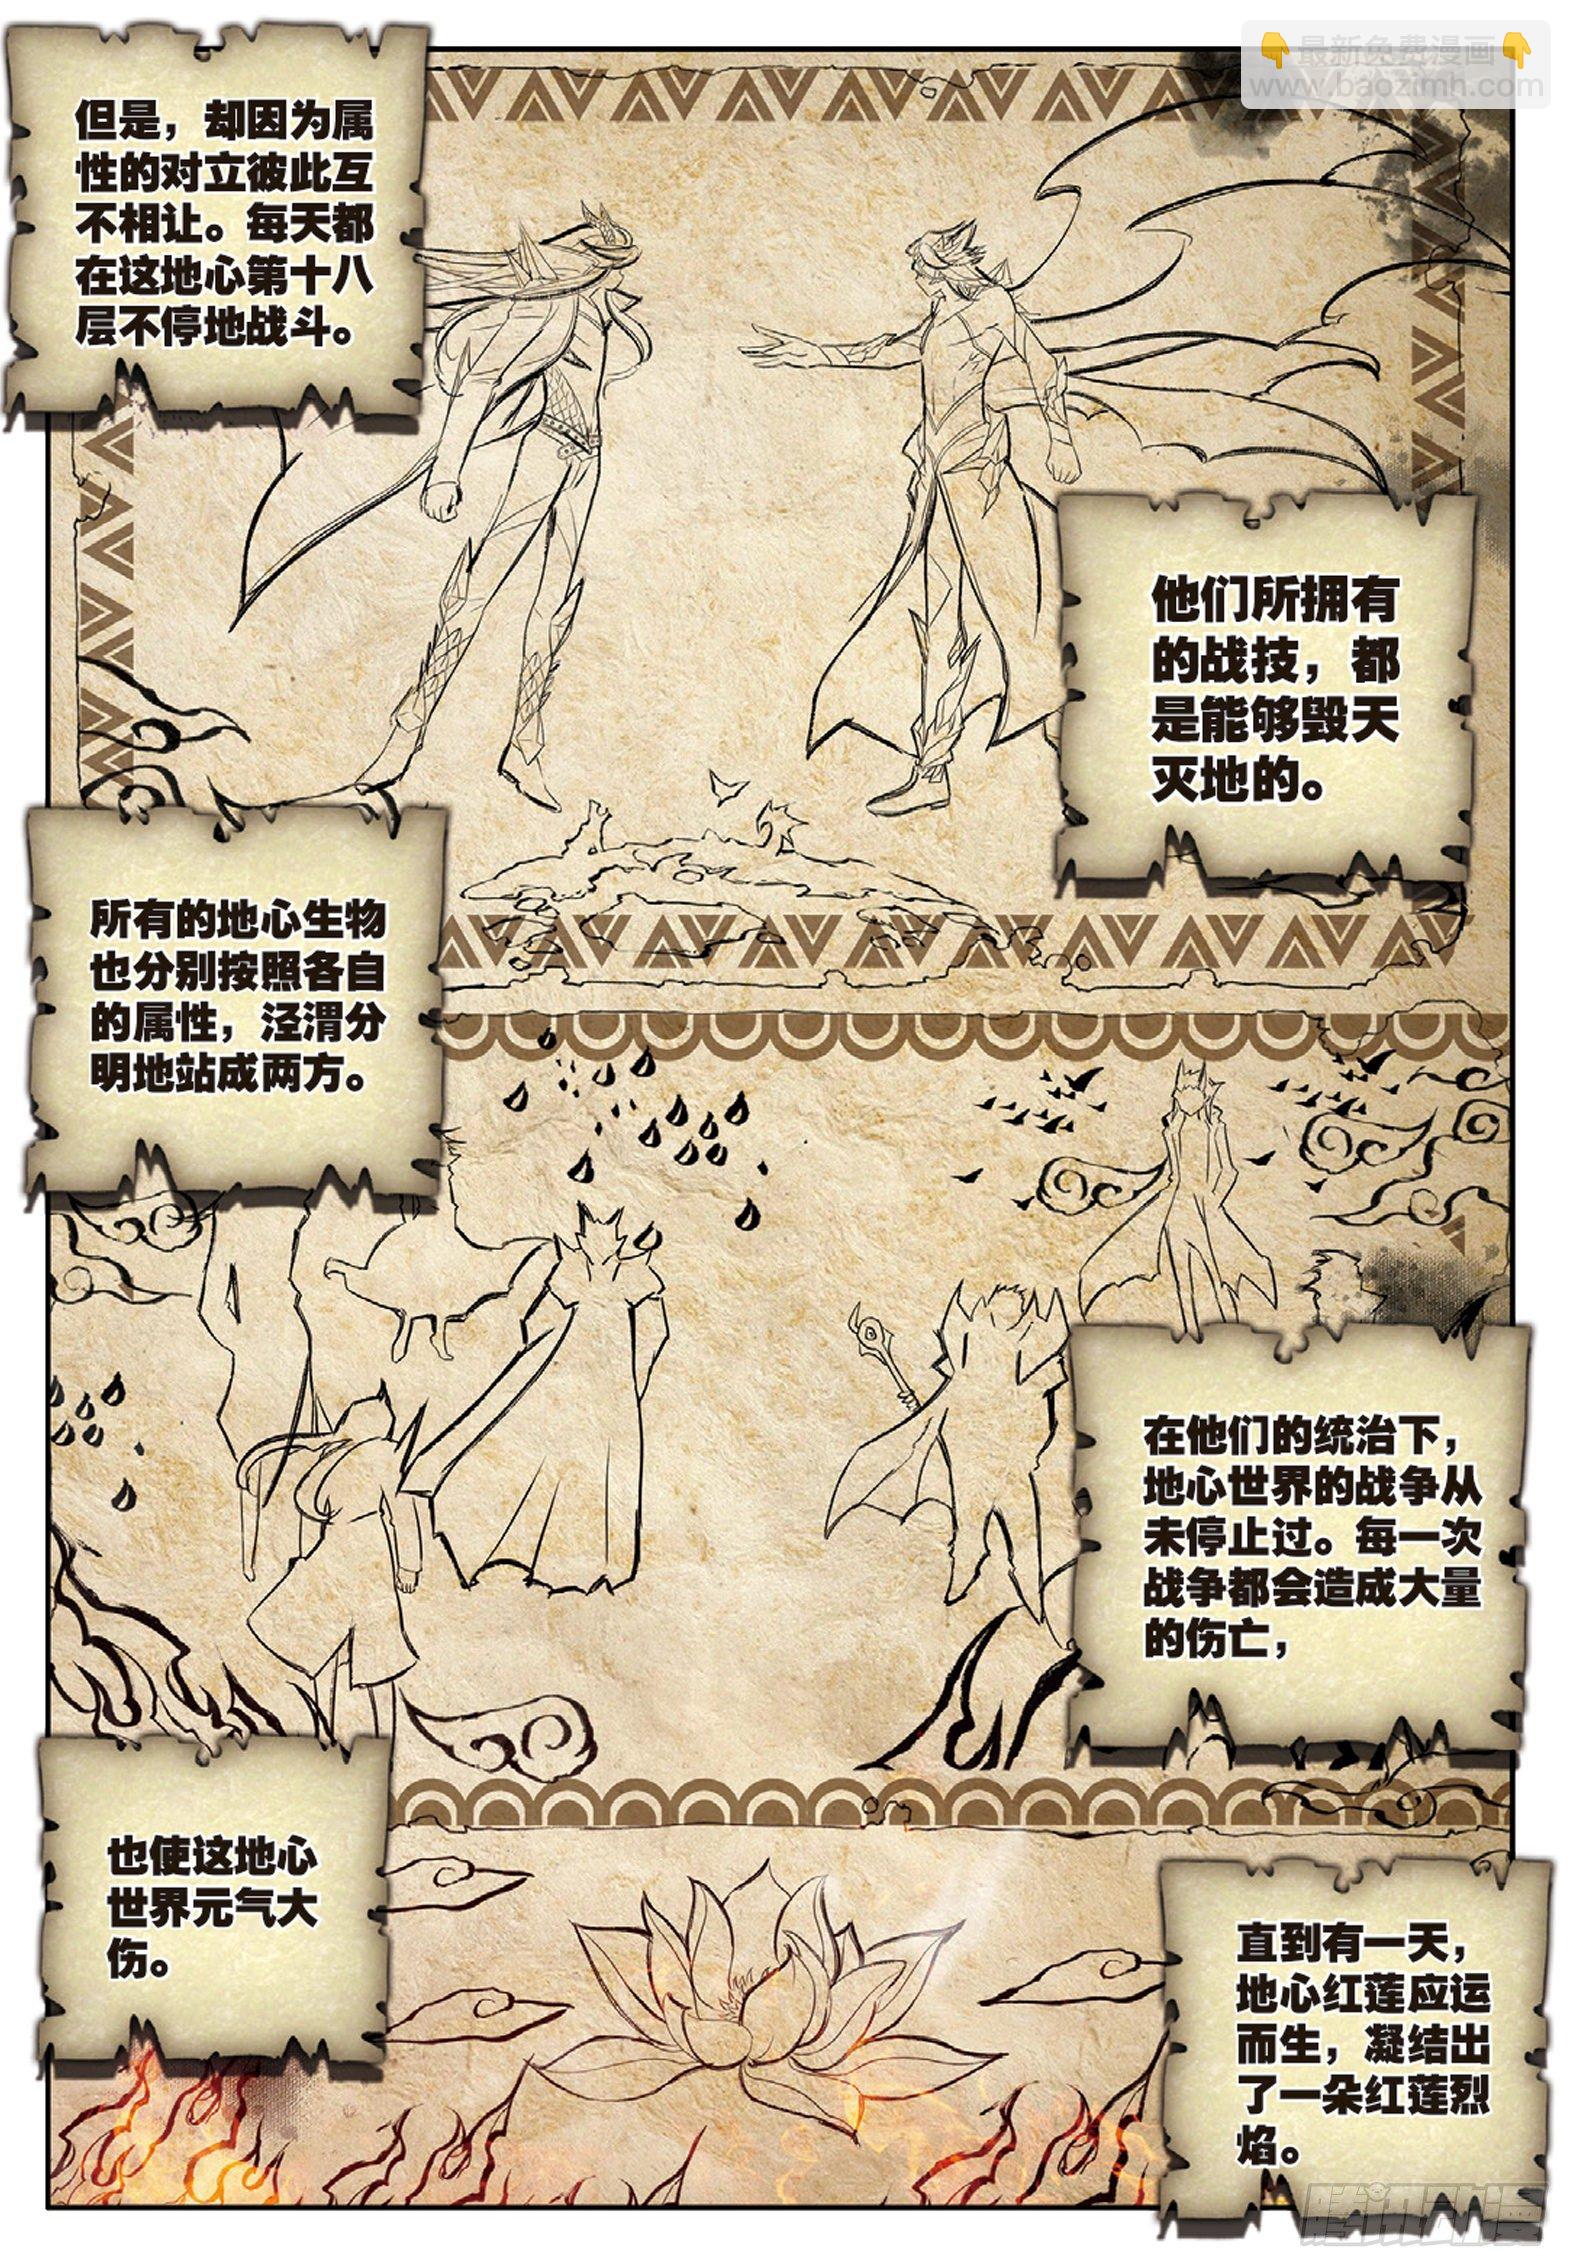 👇最新免费漫画👇
www.baozimh.com
但是，却因为属
性的对立彼此互
不相让。每天都
在这地心第十八
层不停地战斗。
他们所拥有
的战技，都
是能够毁天
灭地的。
所有的地心生物
也分别按照各自
的属性，泾渭分
明地站成两方。
在他们的统治下，
地心世界的战争从
未停止过。每一次
战争都会造成大量
的伤亡，
也使这地心
世界元气大
伤。
直到有一天，
地心红莲应运
而生，凝结出
了一朵红莲烈
焰。
腾讯动漫